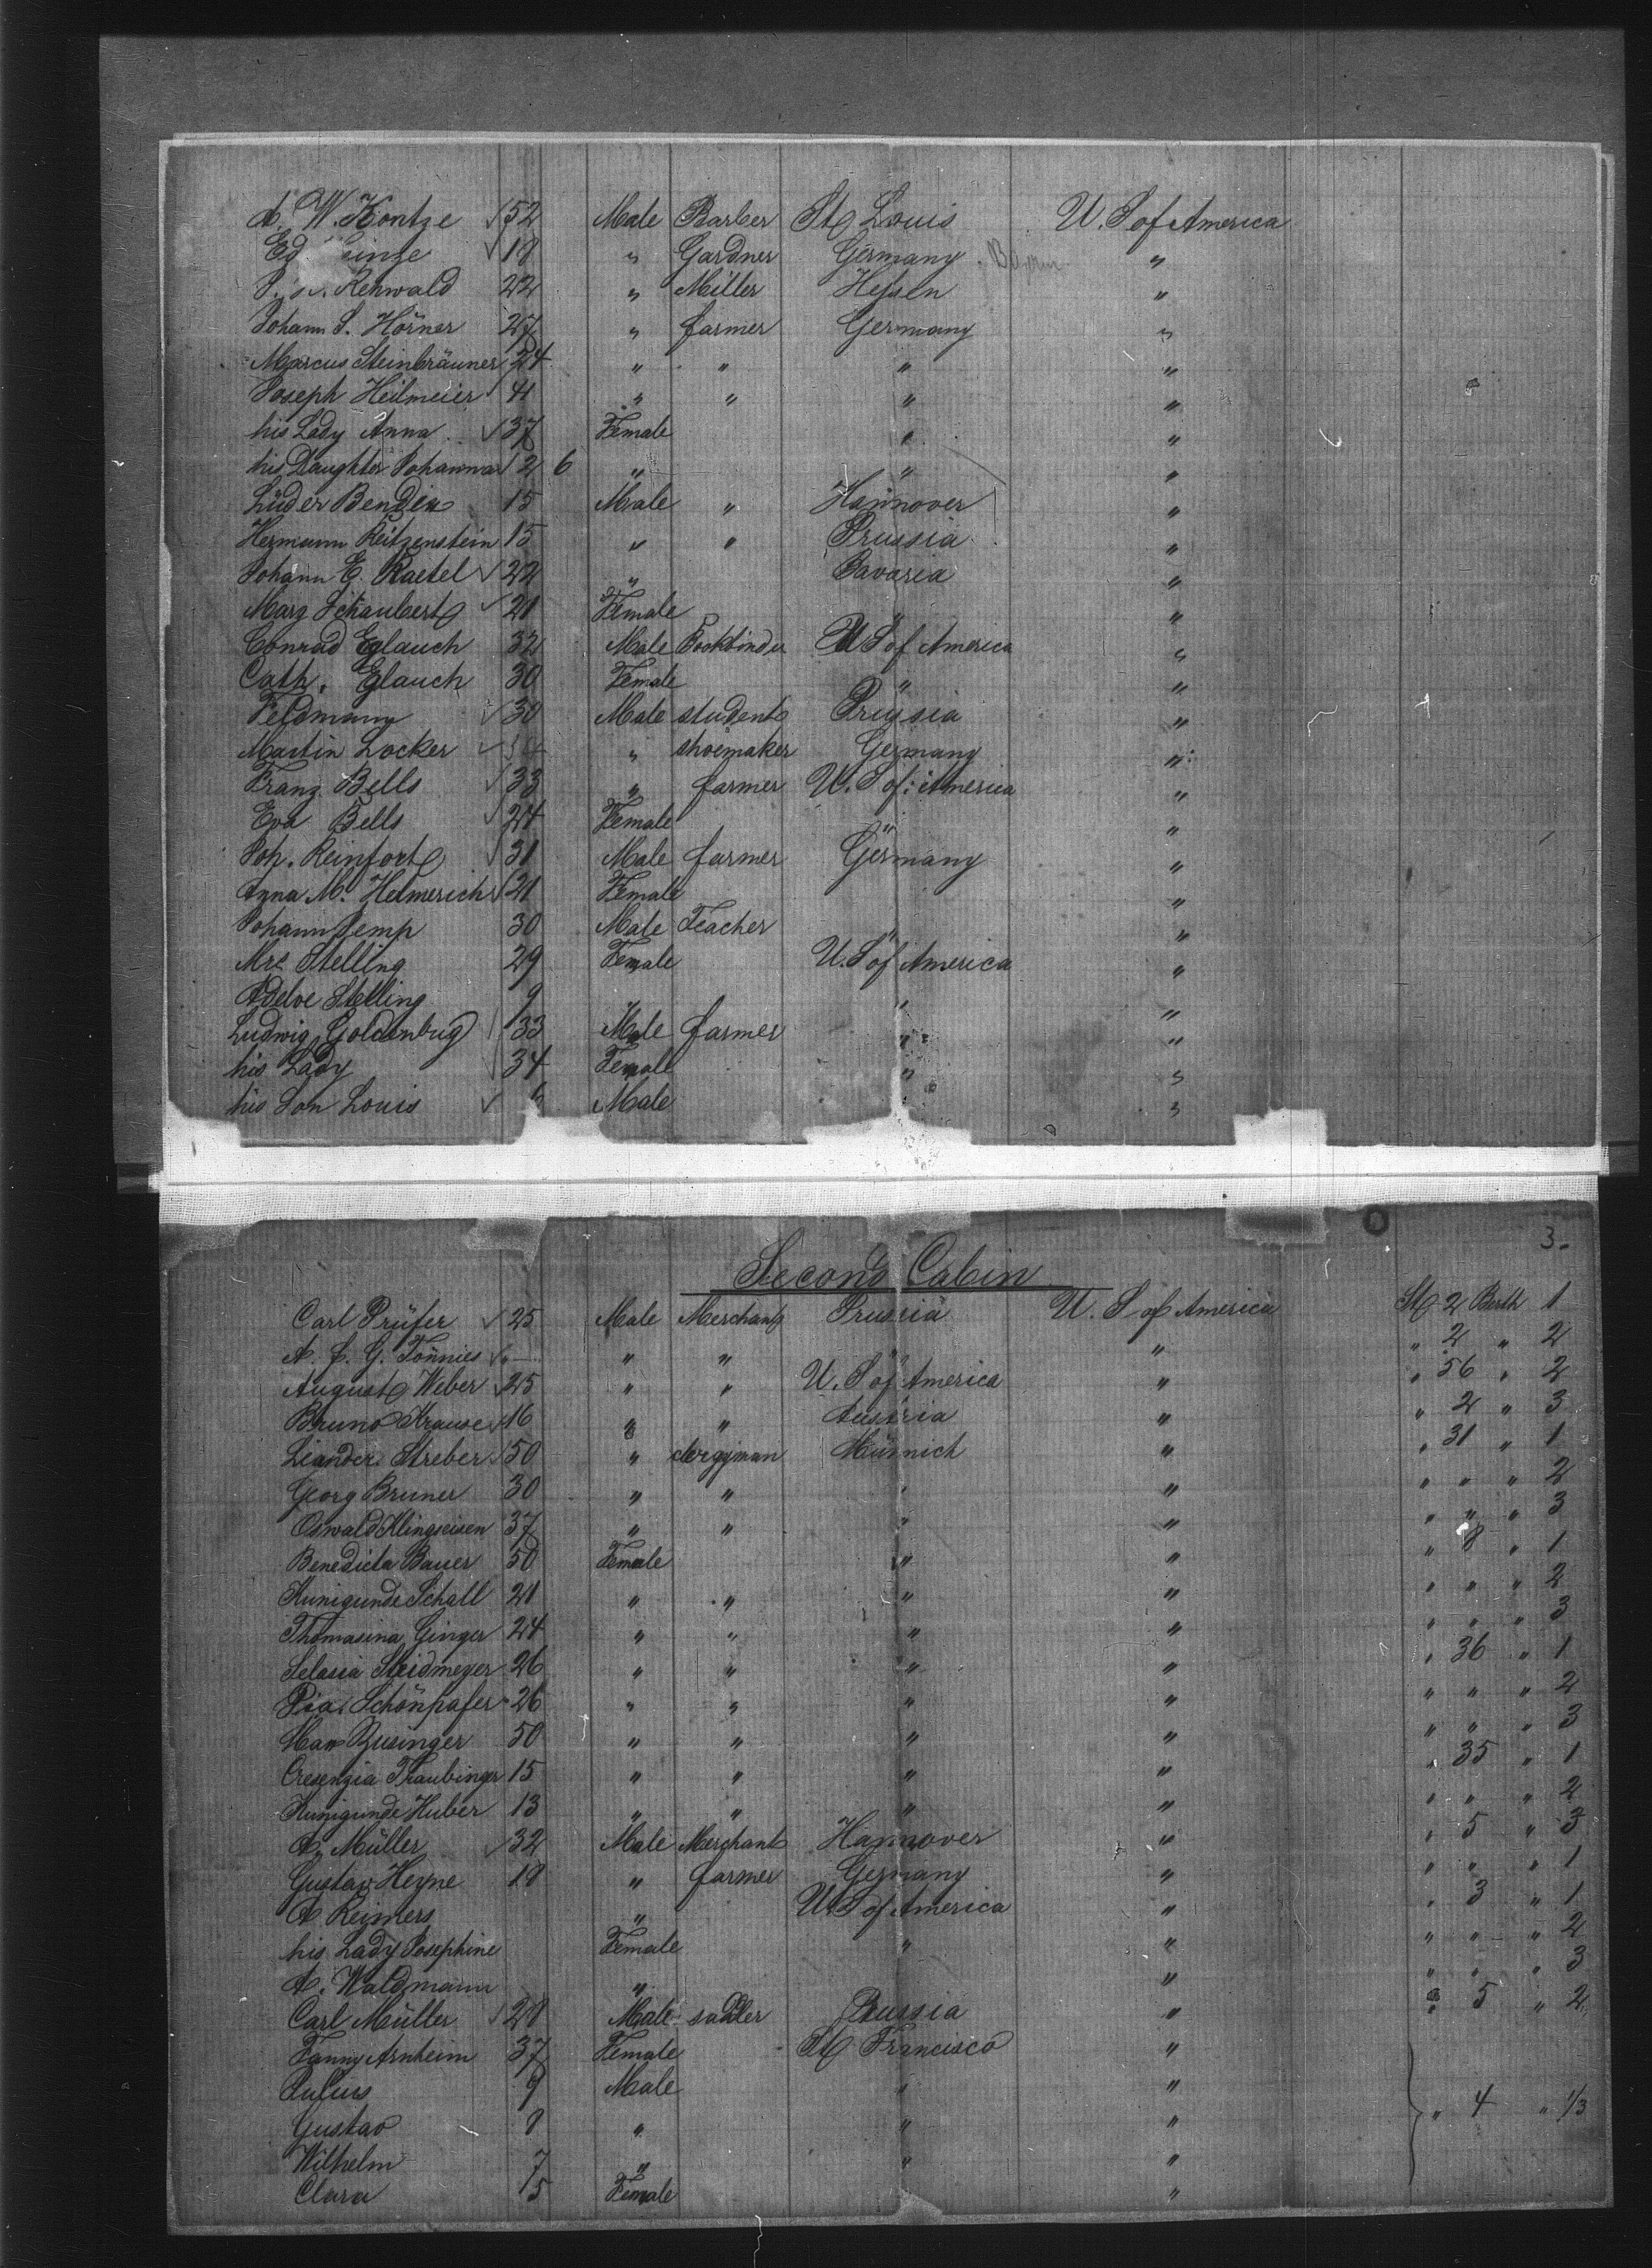 A. W. Kontze √ 52 Male Barber St Louis U. S of America
Ed √ 18 " Gardner Germany "
Rehwald 22 " Miller Hessen "
Johann S. Hörner 27 " farmer Germany "
Marcus Steinbräuner 24 " " " "
Joseph Heilmeier 41 " " " "
his Lady Anna √ 37 Female " "
his Daughter Johanna 2 6 " " "
Lüder Bendix 15 Male " Hannover "
Hermann Reitzenstein 15 " " Prussia "
Johann E. Raetel √ 22 " Bavaria "
Marg Schaubert √ 21 Female " "
Conrad Eglauch 32 Male Bookbinder U S of America "
Cath. Eglauch 30 Female " "
Feldmann √ 30 Male student Prussia "
Martin Locker √ " shoemaker Germany "
Franz Bells √ 33 " farmer U. S of America "
Eva Bells √ 24 Female " "
Joh. Reinfort √ 31 Male farmer Germany "
Anna M. Helmerichs √ 21 Female "
Johann Pemp 30 Male Teacher " "
Mrs Stelling 29 Female U. S of America "
Adelve Stelling 9 " " "
Ludwig Goldenbug √ 33 Male farmer " "
his Lady √ 34 Female " "
his Son Louis √ Male "
3.
Second Cabin
Carl Prüfer √ 25 Male Merchant Prussia U. S of America St 2 Berth 1
A. f. G. Tönnies √ — " " " " " 2 " 2
August Weber √ 25 " " U. S of America " " 56 " 2
Bruno Krause √ 16 " " Austria " " 2 " 3
Leander Streber √ 50 " clergyman Münnich " " 31 " 1
Georg Bruner 30 " " " " " " " 2
Oswald Klingseisen 37 " " " " " " " 3
Benedicta Bauer 50 Female " " " 8 " 1
Kunigunde Schall 21 " " " " " " " 2
Thomasina Ginger 24 " " " " " " " 3
Selasia Steidmeyer 26 " " " " " 36 " 1
Pia Schönhafer 26 " " " " " " " 2
Max Zusinger 50 " " " " " " " 3
Cresenzia Traubinger 15 " " " " " 35 " 1
Kunigunde Huber 13 " " " " " " " 2
A. Müller √ 32 Male Merchant Hannover " " 5 " 3
Gustav Heyne 18 " farmer Germany " " " " 1
A Reimers " U. S of America " " 3 " 1
his Lady Josephine Female " " " " " 2
A. Waldmann " " " " " 3
Carl Müller √ 28 Male sadler Prussia " " 5 " 2
Fanny Arnheim 37 Female St Francisco "
Julius 9 Male " "
Gustav 8 " " " " 4 " 1/3
Wilhelm 7 " " "
Clara 5 Female "